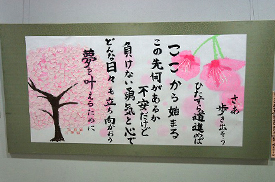 さあ
歩き出そう
ひたすら道進めば
ここから始まる
この先何があるか
不安だけど
負けない勇気と心で
どんな日々も立ち向かおう
夢を叶えるために